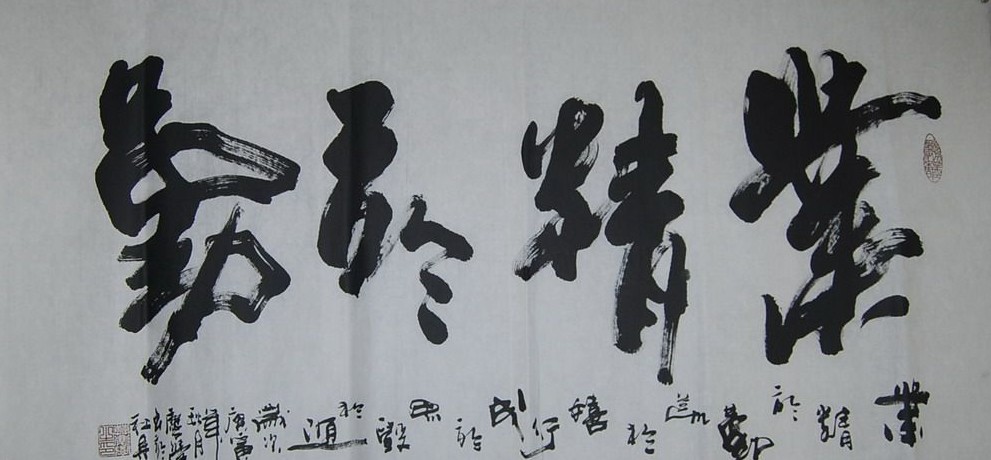 業精於勤
業精於勤荒於嬉行成於思毀於随歲次庚寅年秋月